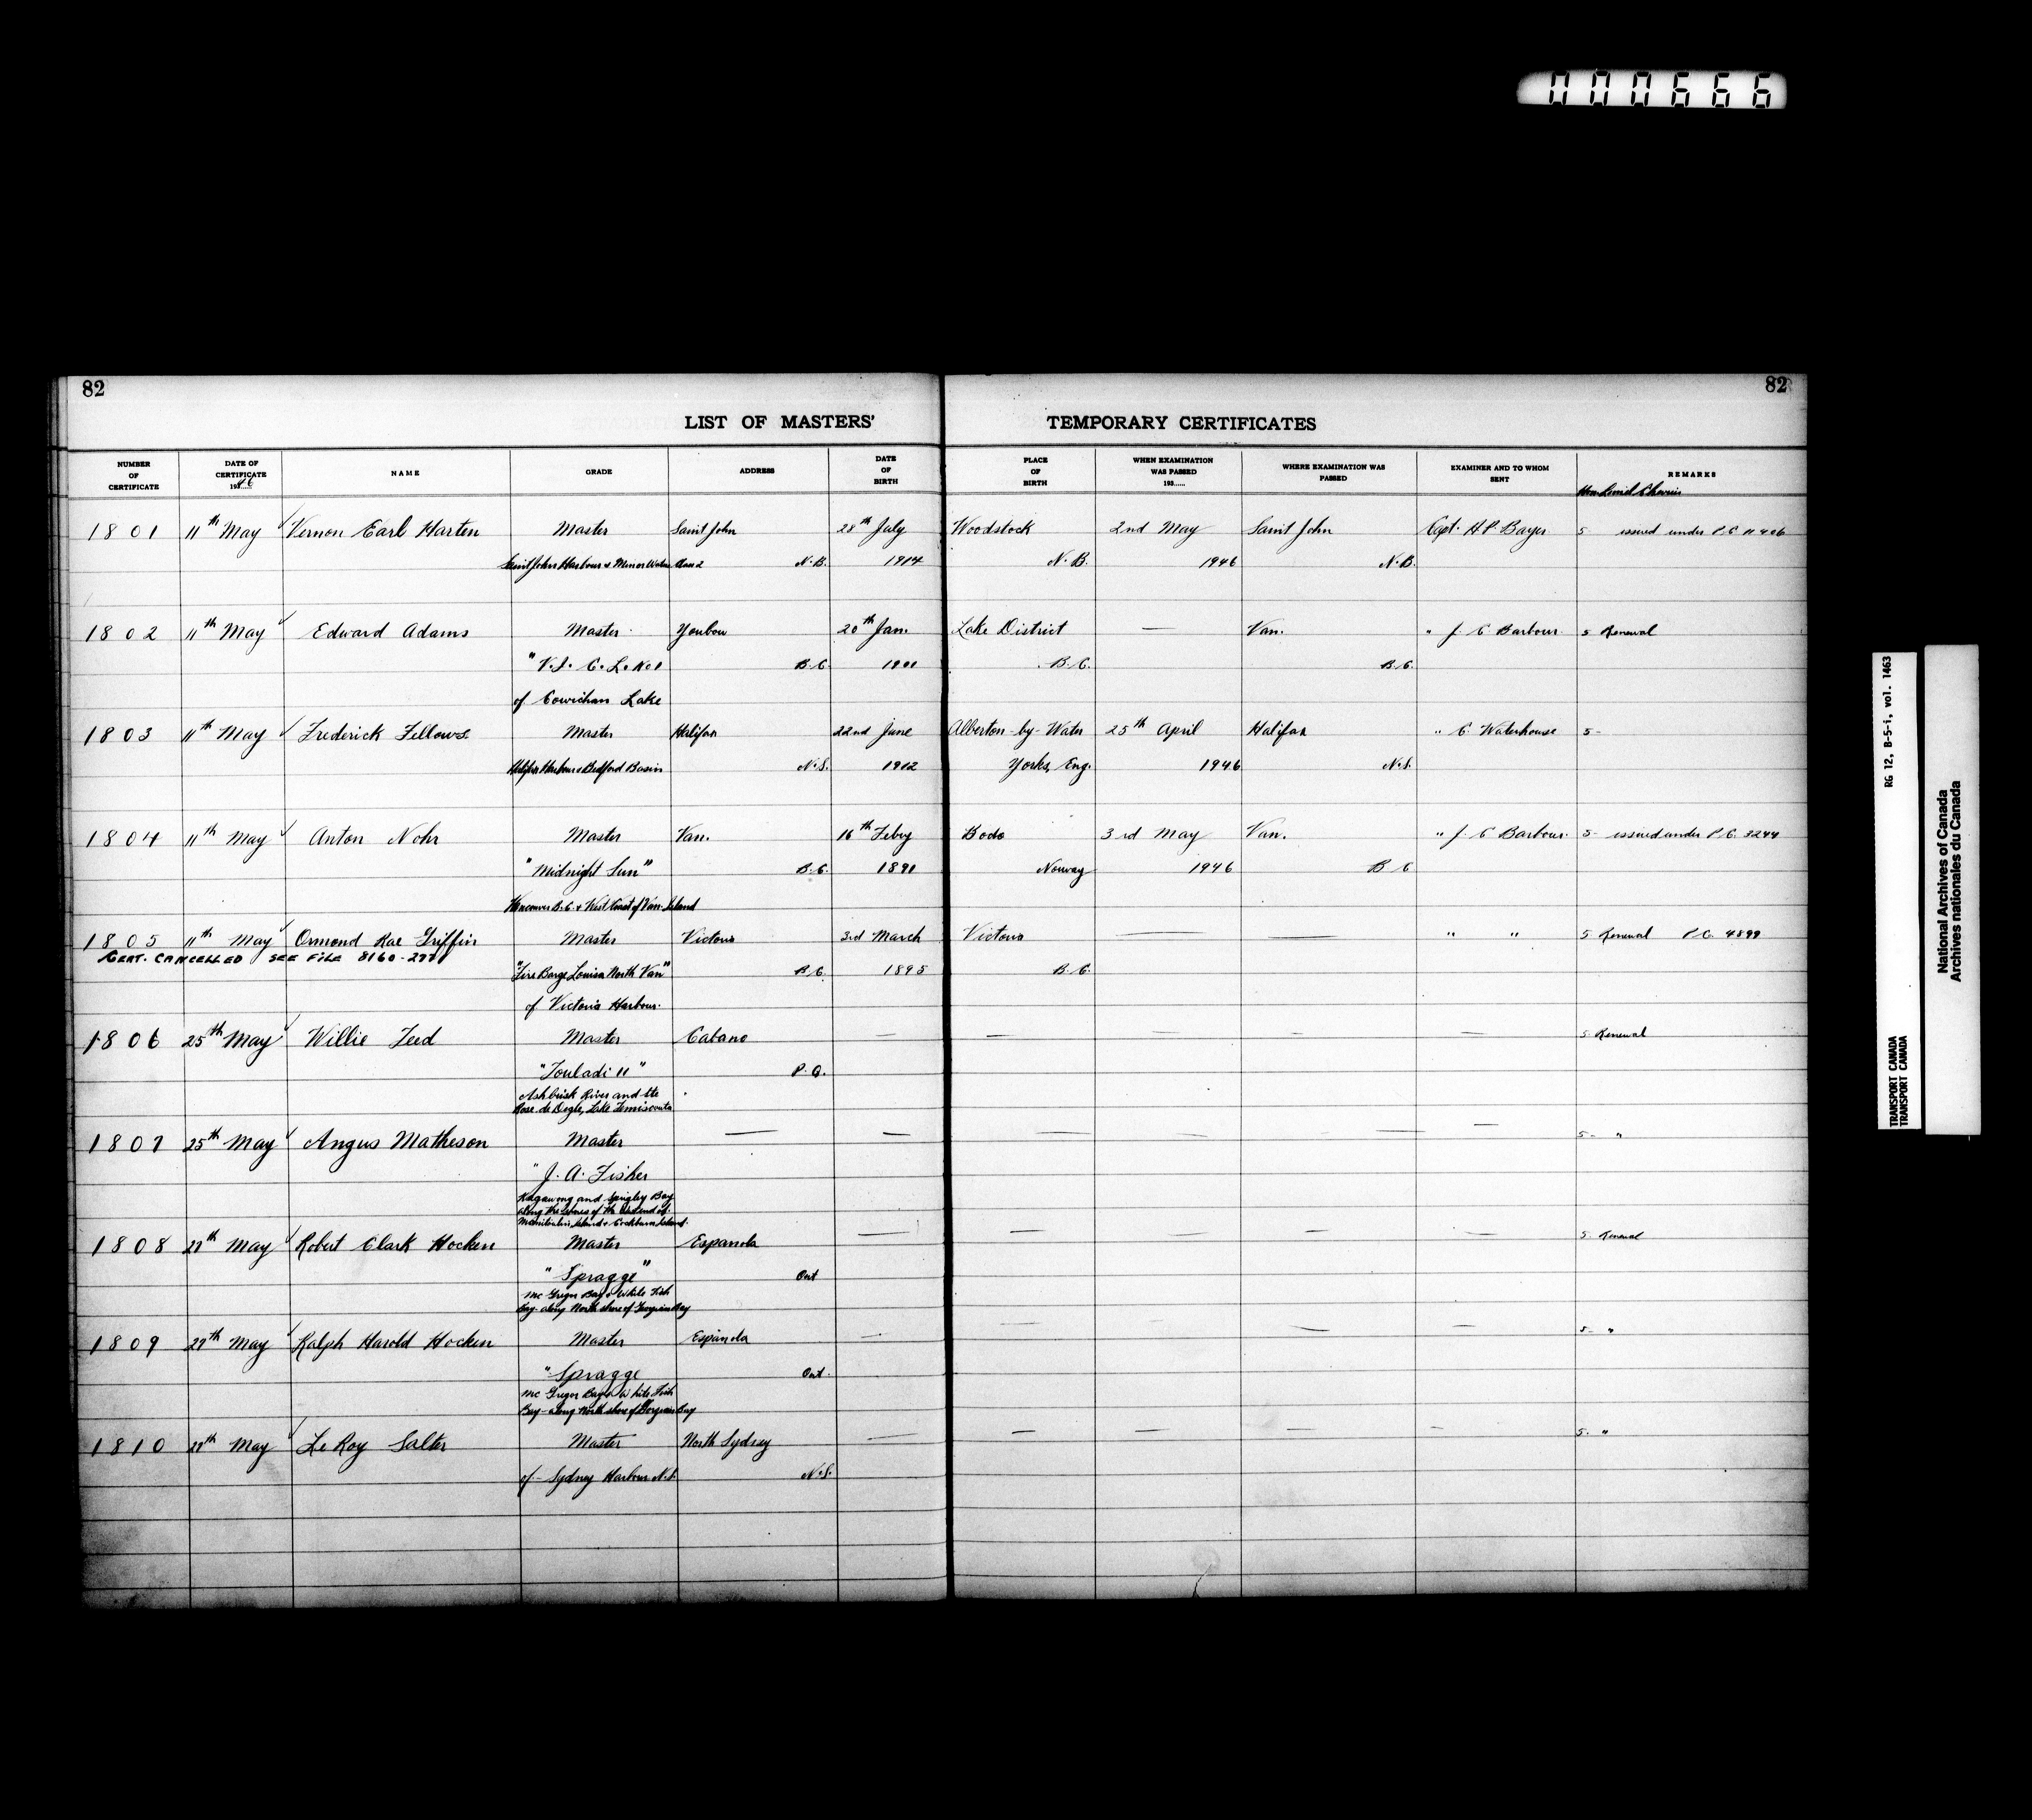 000666
82
82
LIST OF MASTERS' TEMPORARY CERTIFICATES
NUMBER OF CERTIFICATE
DATE OF CERTIFICATE 1946
NAME
GRADE
ADDRESS
DATE OF BIRTH
PLACE OF BIRTH
WHEN EXAMINATION WAS PASSED 193.....
WHERE EXAMINATION WAS PASSED
EXAMINER AND TO WHOM SENT
REMARKS
1801 11th May Vernon Earl Harten Master Saint John 28th July Woodstock 2nd May Saint John Capt. H.P. Bayer 5 issued under P.C. 11406
Saint John Harbour & Minor Waters Class 2 N.B. 1914 N.B. 1946 N.B.
1802 11th May Edward Adams Master Youbou 20th Jan. Lake District — Van. " J. C. Barbour 5 Renewal
"V.I. C. L. No 1 B.C. 1901 B.C. B.C.
of Cowichan Lake
1803 11th May Frederick Fellows Master Halifax 22nd June Alberton-by-Water 25th April Halifax " C. Waterhouse 5-
Halifax Harbour & Bedford Basin N.S. 1912 Yorks, Eng. 1946 N.S.
1804 11th May Anton Nohr Master Van. 16th Feby Bodo 3rd May Van. " J. C. Barbour 5- issued under P.C. 3244
"Midnight Sun" B.C. 1891 Norway 1946 B.C.
Vancouver B.C. & West Coast of Van. Island
1805 11th May Ormond Rae Griffin Master Victoria 3rd March Victoria — — " " 5 Renewal P.C. 4899
CERT. CANCELLED SEE FILE
"Fire Barge Louisa North Van" B.C. 1895 B.C.
of Victoria Harbour.
1806 25th May Willie Feed Master Cabano — — — — — 5 Renewal
"Touladi II" P.Q.
River and
Lake Temiscouata
1807 25th May Angus Matheson Master — — — — — — 5- "
"J. A. Fisher
Kagawong and Spigley Bay
along the shores of the
Manitoulin Island & Cockburn Island.
1808 27th May Robert Clark Hocken Master Espanola — — — — — 5 Renewal
"Spragge" Ont
Mc Gregor Bay & White Fish
Bay- along North shore of Georgian Bay
1809 27th May Ralph Harold Hocken Master Espanola — — — — — 5- "
"Spragge Ont.
Mc Gregor Bay & White Fish
Bay- along North shore of Georgian Bay
1810 27th May Le Roy Salter Master North Sydney — — — — — 5- "
of- Sydney Harbour N.S. N.S.
RG 12, B-5-i, vol. 1463
TRANSPORT CANADA
TRANSPORT CANADA
National Archives of Canada
Archives nationales du Canada